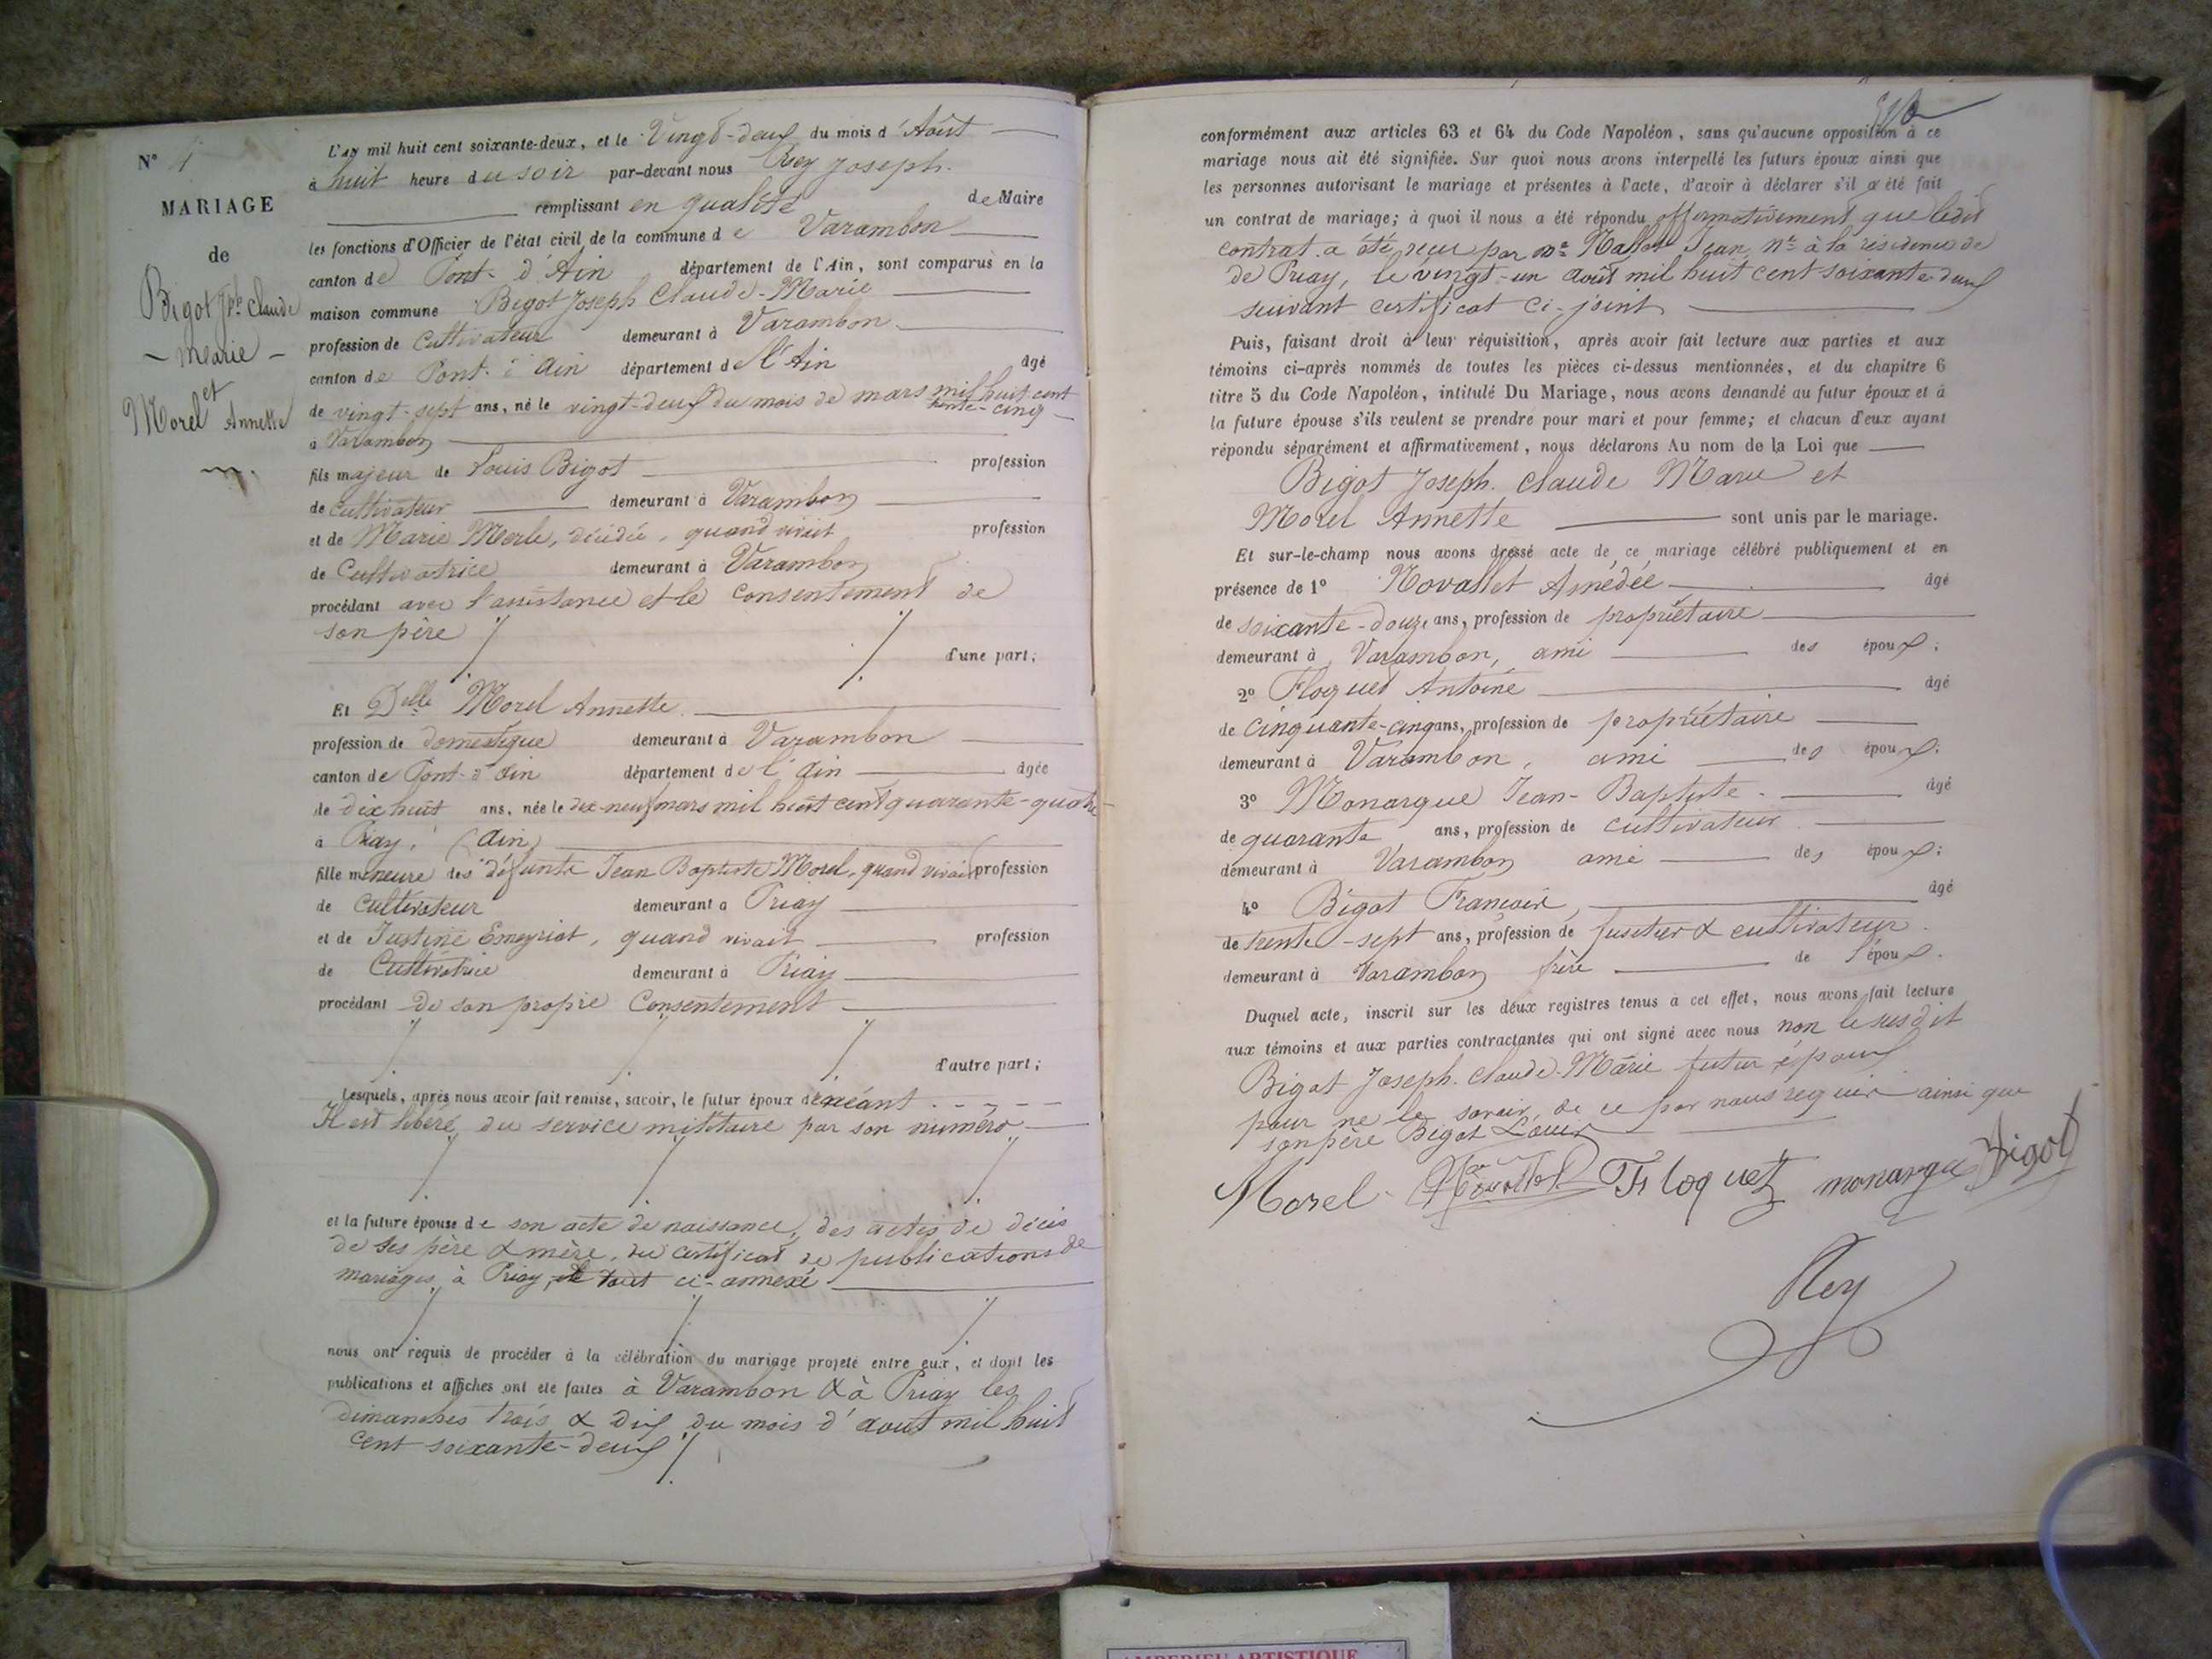 N° 1
MARIAGE
de
Bigot Jph Claude
- Marie -
et
Morel Annette
L'AN mil huit cent soixante-deux, et le Vingt-deux du mois d'Août
à huit heure du soir par-devant nous Rey Joseph.
remplissant en qualité de Maire
les fonctions d'Officier de l'état civil de la commune de Varambon
canton de Pont-d'Ain département de l'Ain, sont comparus en la
maison commune Bigot Joseph Claude-Marie
profession de Cultivateur demeurant à Varambon
canton de Pont-d'Ain département de l'Ain âgé
de vingt-sept ans, né le vingt-deux du mois de mars mil huit cent
trente-cinq
à Varambon
fils majeur de Louis Bigot profession
de cultivateur demeurant à Varambon
et de Marie Merle, décédée, quand vivait profession
de Cultivatrice demeurant à Varambon
procédant avec l'assistance et le consentement de
son père
d'une part;
Et Delle Morel Annette
profession de domestique demeurant à Varambon
canton de Pont-d'Ain département de l'Ain âgée
de dix huit ans, née le dix-neuf mars mil huit cent quarante-quatre
à Priay, (Ain)
fille mineure des défunts Jean Baptiste Morel, quand vivait profession
de Cultivateur demeurant à Priay
et de Justine Emeyriat, quand vivait profession
de Cultivatrice demeurant à Priay
procédant de son propre Consentement
d'autre part;
Lesquels, après nous avoir fait remise, savoir, le futur époux de néant
Il est libéré du service militaire par son numéro
et la future épouse de son acte de naissance, des actes de décès
de ses père & mère, du certificat de publications de
mariages à Priay, le tout ci-annexé
nous ont requis de procéder à la célébration du mariage projeté entre eux, et dont les
publications et affiches ont été faites à Varambon & à Priay les
dimanches trois & dix du mois d'août mil huit
cent soixante-deux
conformément aux articles 63 et 64 du Code Napoléon, sans qu'aucune opposition à ce
mariage nous ait été signifiée. Sur quoi nous avons interpellé les futurs époux ainsi que
les personnes autorisant le mariage et présentes à l'acte, d'avoir à déclarer s'il a été fait
un contrat de mariage; à quoi il nous a été répondu affirmativement que ledit
contrat a été reçu par Me Jean, Nre à la résidence de
de Priay, le vingt-un août mil huit cent soixante-deux
suivant certificat ci-joint
Puis, faisant droit à leur réquisition, après avoir fait lecture aux parties et aux
témoins ci-après nommés de toutes les pièces ci-dessus mentionnées, et du chapitre 6
titre 5 du Code Napoléon, intitulé Du Mariage, nous avons demandé au futur époux et à
la future épouse s'ils veulent se prendre pour mari et pour femme; et chacun d'eux ayant
répondu séparément et affirmativement, nous déclarons Au nom de la Loi que
Bigot Joseph Claude Marie et
Morel Annette sont unis par le mariage.
Et sur-le-champ nous avons dressé acte de ce mariage célébré publiquement et en
présence de 1° Novallet Amédée âgé
de soixante-douze ans, profession de propriétaire
demeurant à Varambon, ami des époux;
2° Floquet Antoine âgé
de cinquante-cinq ans, profession de propriétaire
demeurant à Varambon, ami des époux;
3° Monarque Jean-Baptiste âgé
de quarante ans, profession de cultivateur
demeurant à Varambon ami des époux;
4° Bigot François, âgé
de trente-sept ans, profession de fusetier & cultivateur
demeurant à Varambon frère de l'époux.
Duquel acte, inscrit sur les deux registres tenus à cet effet, nous avons fait lecture
aux témoins et aux parties contractantes qui ont signé avec nous non le susdit
Bigot Joseph Claude-Marie futur époux
pour ne le savoir, de ce par nous requis ainsi que
son père Bigot Louis
Morel Novallet Floquet monarque Bigot
Rey
AMBERIEU ARTISTIQUE